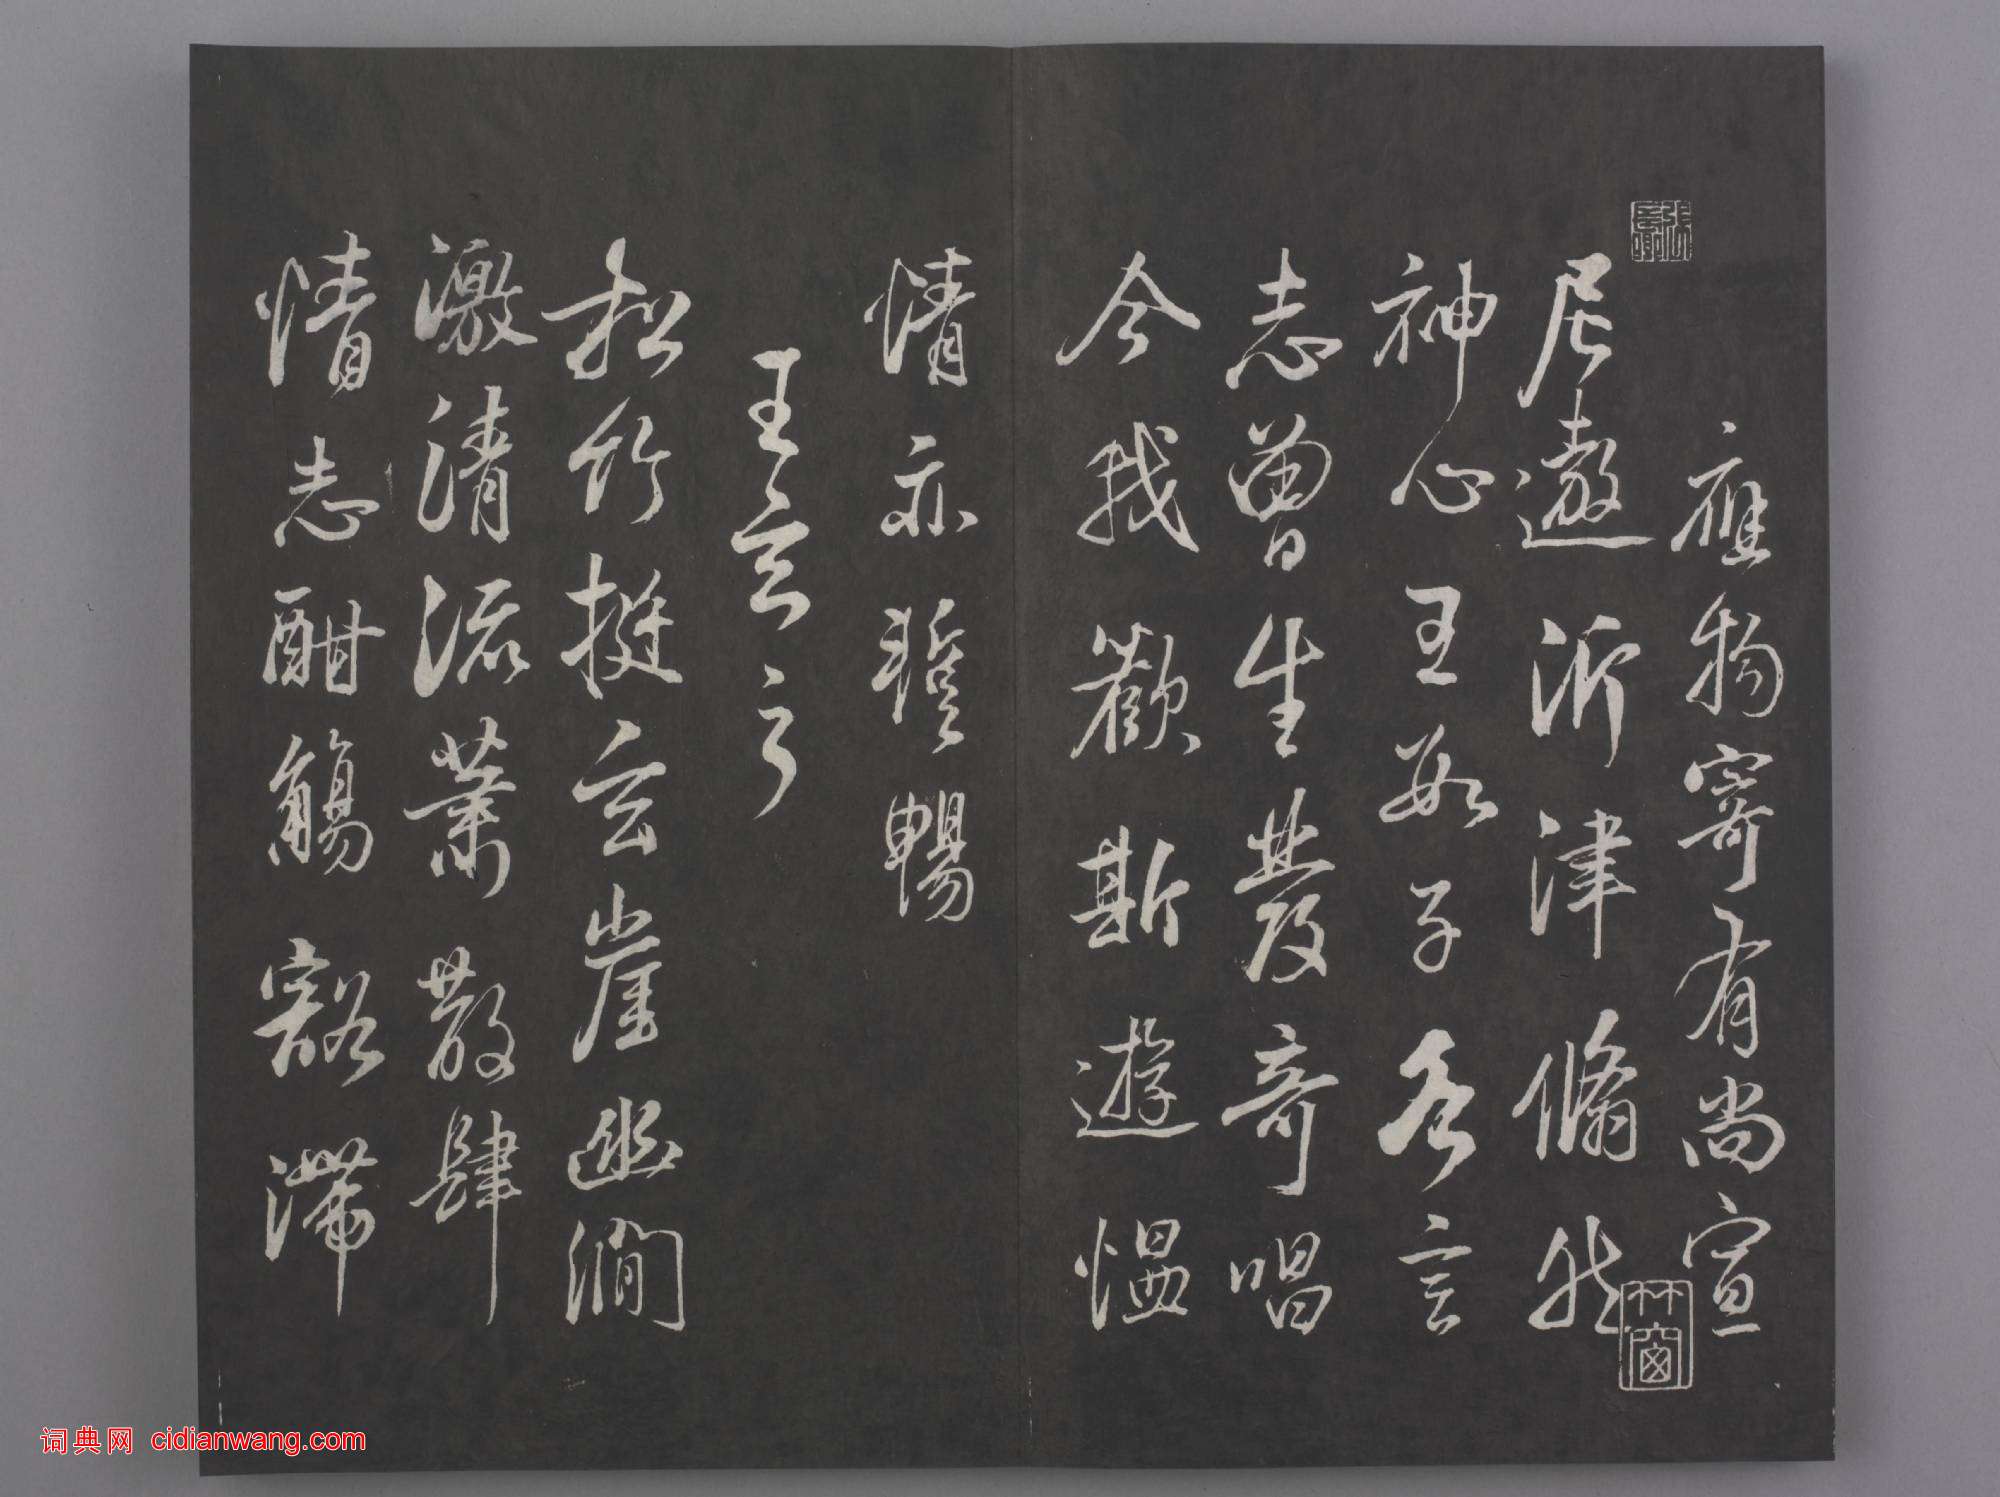 應物寄有尚宣
尼遨沂津翛然
神心王數子各言
志曾生發奇唱
今我歡斯遊慍
情亦蹔暢
王玄之
松竹挺玄崖幽澗
激清流蕭散肆
情志酣觴豁滯
竹窗
词典网 cidianwang.com